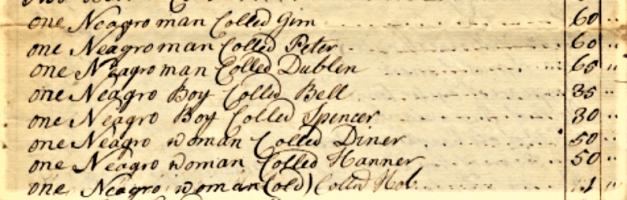 one Neagro man Colled Jim 60 "
one Neagro man Colled Peter 60 "
one Neagro man Colled Dublen 65 "
one Neagro Boy Colled Bell 35 "
one Neagro Boy Colled Spencer 30 "
one Neagro woman Colled Diner 50 "
one Neagro woman Colled Hanner 50 "
one Neagro woman (old) Colled